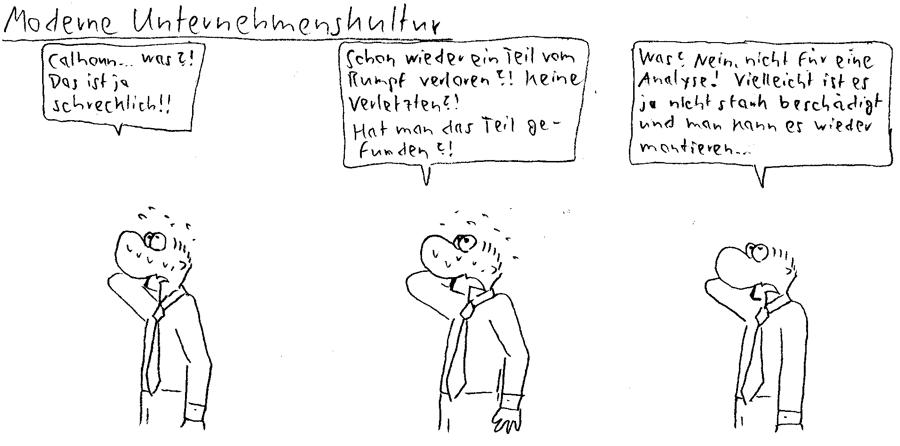 Moderne Unternehmenskultur
Calhoun... was?!
Das ist ja
schrecklich!!
Schon wieder ein Teil vom
Rumpf verloren?! Keine
Verletzten?!
Hat man das Teil ge-
funden?!
Was? Nein, nicht für eine
Analyse! Vielleicht ist es
ja nicht stark beschädigt
und man kann es wieder
montieren...